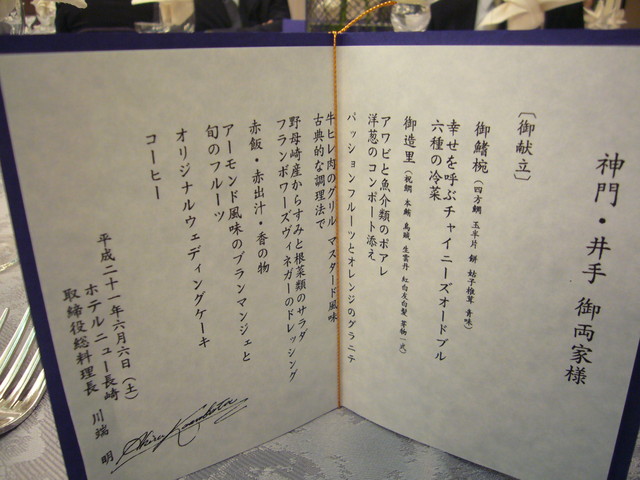 神門・井手 御両家様
〔御献立〕
御鰭椀（四方鯛 玉半片 餅 姑子椎茸 青味）
幸せを呼ぶチャイニーズオードブル
六種の冷菜
御造里（祝鯛 本鮪 烏賊 生雲丹 紅白友白髪 芽物一式）
アワビと魚介類のポアレ
洋葱のコンポート添え
パッションフルーツとオレンジのグラニテ
牛ヒレ肉のグリル マスタード風味
古典的な調理法で
野母崎産からすみと根菜類のサラダ
フランボワーズヴィネガーのドレッシング
赤飯・赤出汁・香の物
アーモンド風味のブランマンジェと
旬のフルーツ
オリジナルウェディングケーキ
コーヒー
平成二十一年六月六日（土）
ホテルニュー長崎
取締役総料理長 川端 明